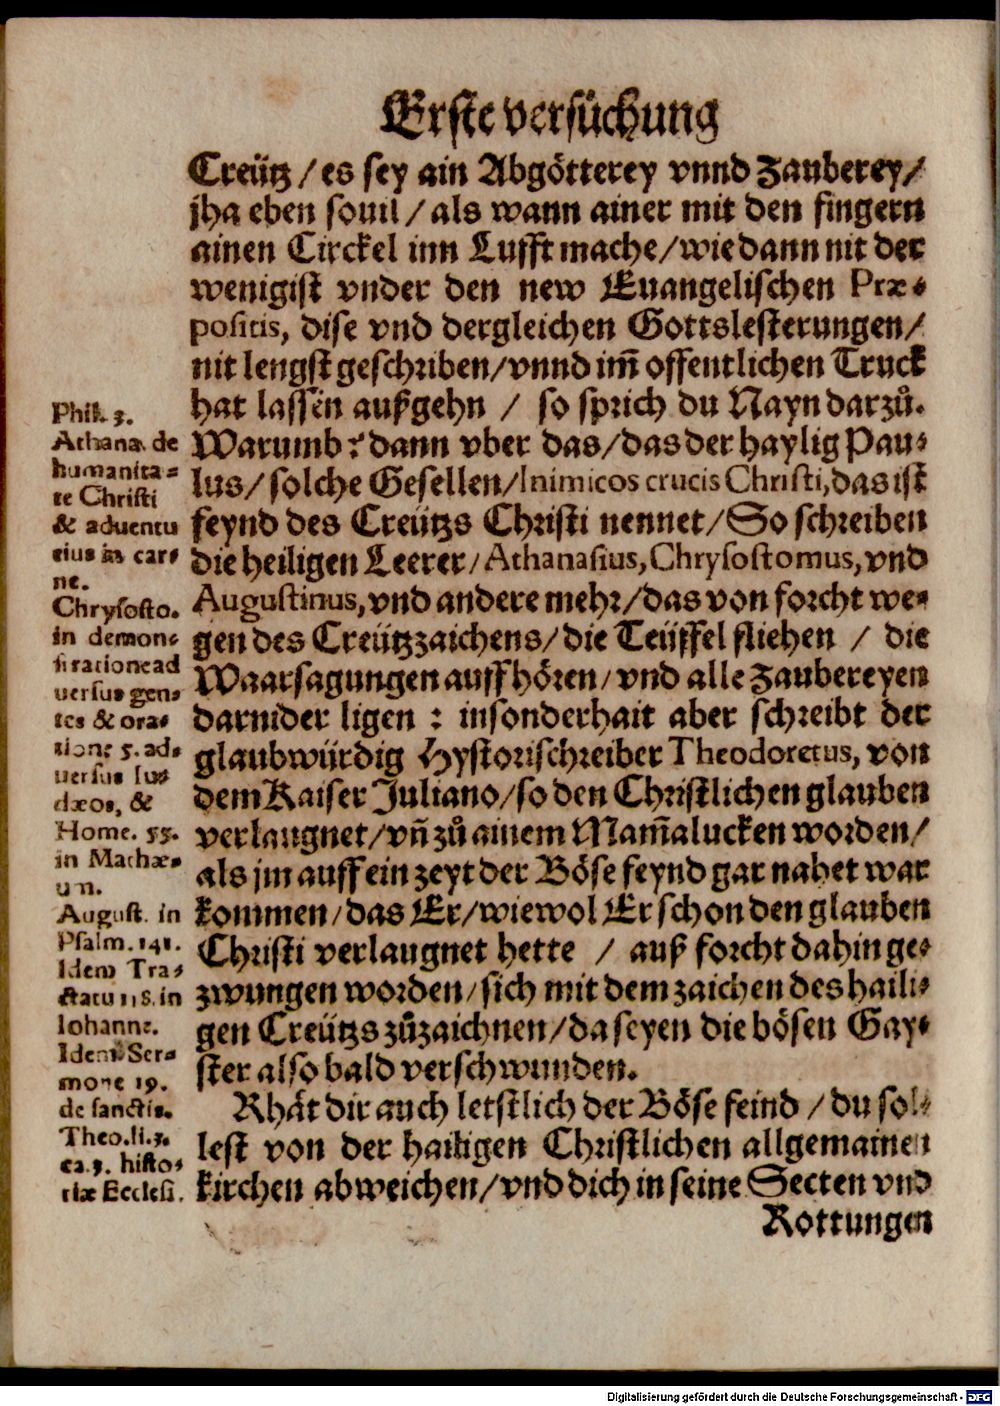 Erste versüchung
Creütz / es sey ain Abgötterey vnnd Zauberey /
jha eben souil / als wann ainer mit den fingern
ainen Circkel inn Lufft mache / wie dann nit der
wenigist vnder den new Euangelischen Præ-
positis, dise vnd dergleichen Gottslesterungen /
nit lengst geschriben / vnnd im̃ offentlichen Truck
hat lassen außgehn / so sprich du Nayn darzů.
Warumb? dann vber das / das der haylig Pau-
lus / solche Gesellen / Inimicos crucis Christi, das ist
feynd des Creützs Christi nennet / So schreiben
die heiligen Leerer / Athanasius, Chrysostomus, vnd
Augustinus, vnd andere mehr / das von forcht we-
gen des Creützzaichens / die Teüffel fliehen / die
Waarsagungen auffhören / vnd alle Zaubereyen
darnider ligen : insonderhait aber schreibt der
glaubwürdig Hystorischreiber Theodoretus, von
dem Kaiser Juliano / so den Christlichen glauben
verlaugnet / vñ zů ainem Mam̃alucken worden /
als jm auff ein zeyt der Böse feynd gar nahet war
kommen / das Er / wiewol Er schon den glauben
Christi verlaugnet hette / auß forcht dahin ge-
zwungen worden / sich mit dem zaichen des haili-
gen Creützs zůzaichnen / da seyen die bösen Gay-
ster also bald verschwunden.
Rhät dir auch letstlich der Böse feind / du sol-
lest von der hailigen Christlichen allgemainen
kirchen abweichen / vnd dich in seine Secten vnd
Rottungen
Phil. 3.
Athana. de
humanita-
te Christi
& aduentu
eius in car-
ne.
Chrysosto.
in demon-
stratione ad
uersus gen-
tes & ora-
tione 5. ad-
uersus Iu-
dæos, &
Home. 55.
in Mathæ-
um.
August. in
Psalm. 141.
Idem Tra-
ctatu 118. in
Iohanne.
Idem Ser-
mone 19.
de sanctis.
Theo. li. 3.
ca. 3. histo-
riæ Ecclesi.
Digitalisierung gefördert durch die Deutsche Forschungsgemeinschaft - DFG